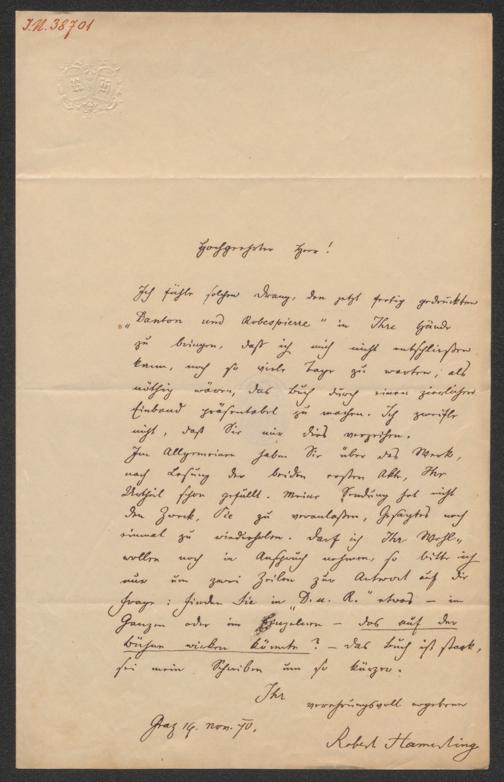 I.N. 38701
Hochgeehrter Herr!
Ich fühle solchen Drang, den jetzt fertig gedruckten
„Danton und Robespierre“ in Ihre Hände
zu bringen, daß ich mich nicht entschließen
kann, noch so viele Tage zu warten, als
nöthig wären, das Buch durch einen zierlichen
Einband präsentabel zu machen. Ich zweifle
nicht, daß Sie mir dies verzeihen.
Im Allgemeinen haben Sie über das Werk,
nach Lesung der beiden ersten Akte, Ihr
Urtheil schon gefällt. Meine Sendung hat nicht
den Zweck, Sie zu veranlaßen, Gesagtes noch
einmal zu wiederholen. Darf ich Ihr Wohl-
wollen noch in Anspruch nehmen, so bitte ich
nur um zwei Zeilen zur Antwort auf die
Frage: finden Sie in „D. u. R.“ etwas – im
Ganzen oder im Einzelnen – das auf der
Bühne wirken könnte? – Das Buch ist stark,
sei mein Schreiben um so kürzer.
Ihr
verehrungsvoll ergebener
Graz 14. Nov. 70.
Robert Hamerling